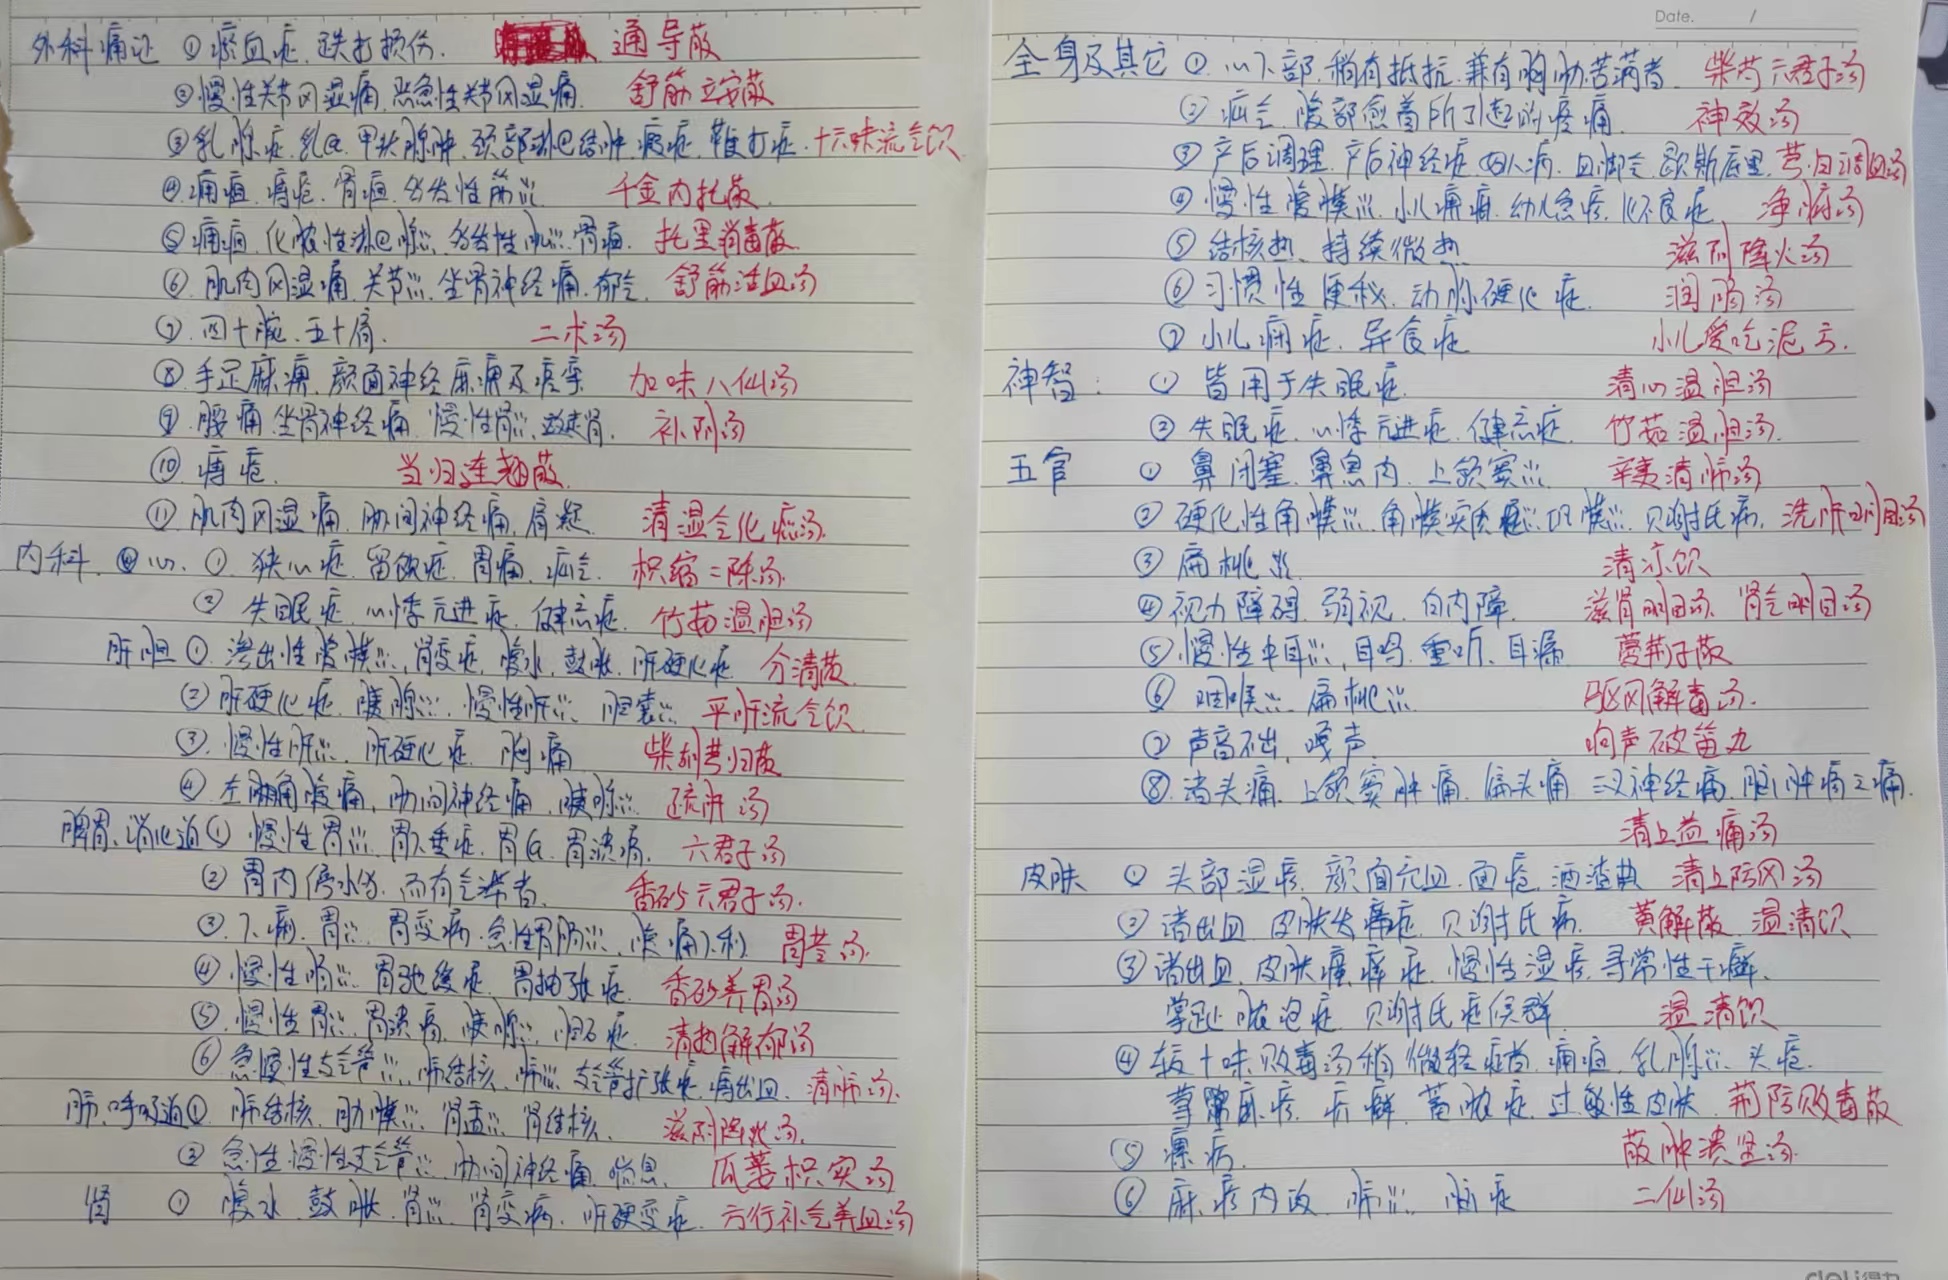 外科痛证 ① 瘀血症 跌打损伤. 通导散
②慢性关节风湿痛 恶急性关节风湿痛 舒筋立安散
③乳腺症 乳@ 甲状腺肿 颈部淋@结肿 十六味流气饮
④痈疽 痔疮 胃疽 多发性筋炎 千金内托散
⑤痈疽 化脓性淋@腺炎 多发性肌炎 胃疽 托里消毒散
⑥ 肌肉风湿痛 关节炎 坐骨神经痛 郁气 舒筋活血汤
⑦ 四十腕 五十肩. 二术汤
⑧ 手足麻痹 颜面神经麻痹及痉挛 加味八仙汤
⑨ 腰痛 坐骨神经痛 慢性肾炎 游走肾. 补阴汤
⑩ 痔疮 当归连翘散
⑪ 肌肉风湿痛 肋间神经痛 肩凝 清湿气化痰汤
内科. 心. ① 狭心症 留饮症 胃痛 疝气 枳缩二陈汤
② 失眠症 心悸亢进症 健忘症 竹茹温胆汤
肝胆 ① 渗出性腹膜炎, 肾变症 腹水 鼓胀 肝硬化症 分清散
② 肝硬化症 胰腺炎 慢性肝炎 胆囊炎 平肝流气饮
③ 慢性肝炎 肝硬化症 胸痛 柴胡芎归散
④ 左胸角腹痛, 肋间神经痛 胰腺炎 疏肝汤
脾胃、消化道 ① 慢性胃炎 胃下垂症 胃@ 胃溃疡 六君子汤
② 胃内停水多 而有气滞者 香砂六君子汤.
③ 下痢 胃炎 胃变病 急性胃肠炎 疼痛下利 胃苓汤
④ 慢性肠炎 胃弛缓症 胃扩张症 香砂养胃汤
⑤ 慢性胃炎 胃溃疡 胰腺炎 胆石症 清热解郁汤
⑥ 急慢性支气管炎 肺结核 肺炎 支气管扩张症 痔出血 清肺汤
肺、呼吸道 ① 肺结核 肋膜炎 肾盂炎 肾结核 滋阴降火汤
② 急性慢性支气管炎 肋间神经痛 喘息 瓜蒌枳实汤
肾 ① 腹水 鼓胀 肾炎 肾变病 肝硬变症 分行补气养血汤
Date. /
全身及其它 ① 心下部 稍有抵抗 兼有胸肋苦满者 柴芍六君子汤
② 疝气 腹部愈着所引起的疼痛 神效汤
③ 产后调理 产后神经症 妇人病 血脚气 歇斯底里 芎归调血汤
④ 慢性腹膜炎 小儿痈疽 幼儿急疹 化不良症 净府汤
⑤ 结核热 持续微热 滋阴降火汤
⑥ 习惯性便秘 动脉硬化症 润肠汤
⑦ 小儿 异食症 小儿爱吃泥方.
神智: ① 皆用于失眠症 清心温胆汤
② 失眠症 心悸亢进症 健忘症 竹茹温胆汤.
五官 ① 鼻闭塞 鼻息肉 上颌窦炎 辛夷清肺汤
② 硬化性角膜炎 角膜实质症 巩膜炎 贝谢氏病 洗肝明目汤
③ 扁桃炎 清凉饮
④ 视力障碍 弱视 白内障 滋肾明目汤 肾气明目汤
⑤ 慢性中耳炎 耳鸣 重听 耳漏 蔓荆子散
⑥ 咽喉炎 扁桃炎 驱风解毒汤.
⑦ 声音不出 嘎声 响声破笛丸
⑧ 诸头痛 上颌窦肿痛 偏头痛 三叉神经痛 脑肿疡之痛.
清上益痛汤
皮肤 ① 头部湿疹 颜面充血 面疮 酒渣鼻 清上防风汤
② 诸出血 皮肤失痒症 贝谢氏病 黄解散 温清饮
③ 诸出血 皮肤瘙痒症 慢性湿疹 寻常性干癣
掌趾脓泡症 贝谢氏症候群 温清饮
④ 较十味败毒汤稍微轻症者 痈疽 乳腺炎 头疮
荨麻疹 疥癣 蓄脓症 过敏性皮肤 荆防败毒散
⑤ 瘰疬. 散肿溃坚汤
⑥ 麻疹内攻 肺炎 脑症 二仙汤
deli得力